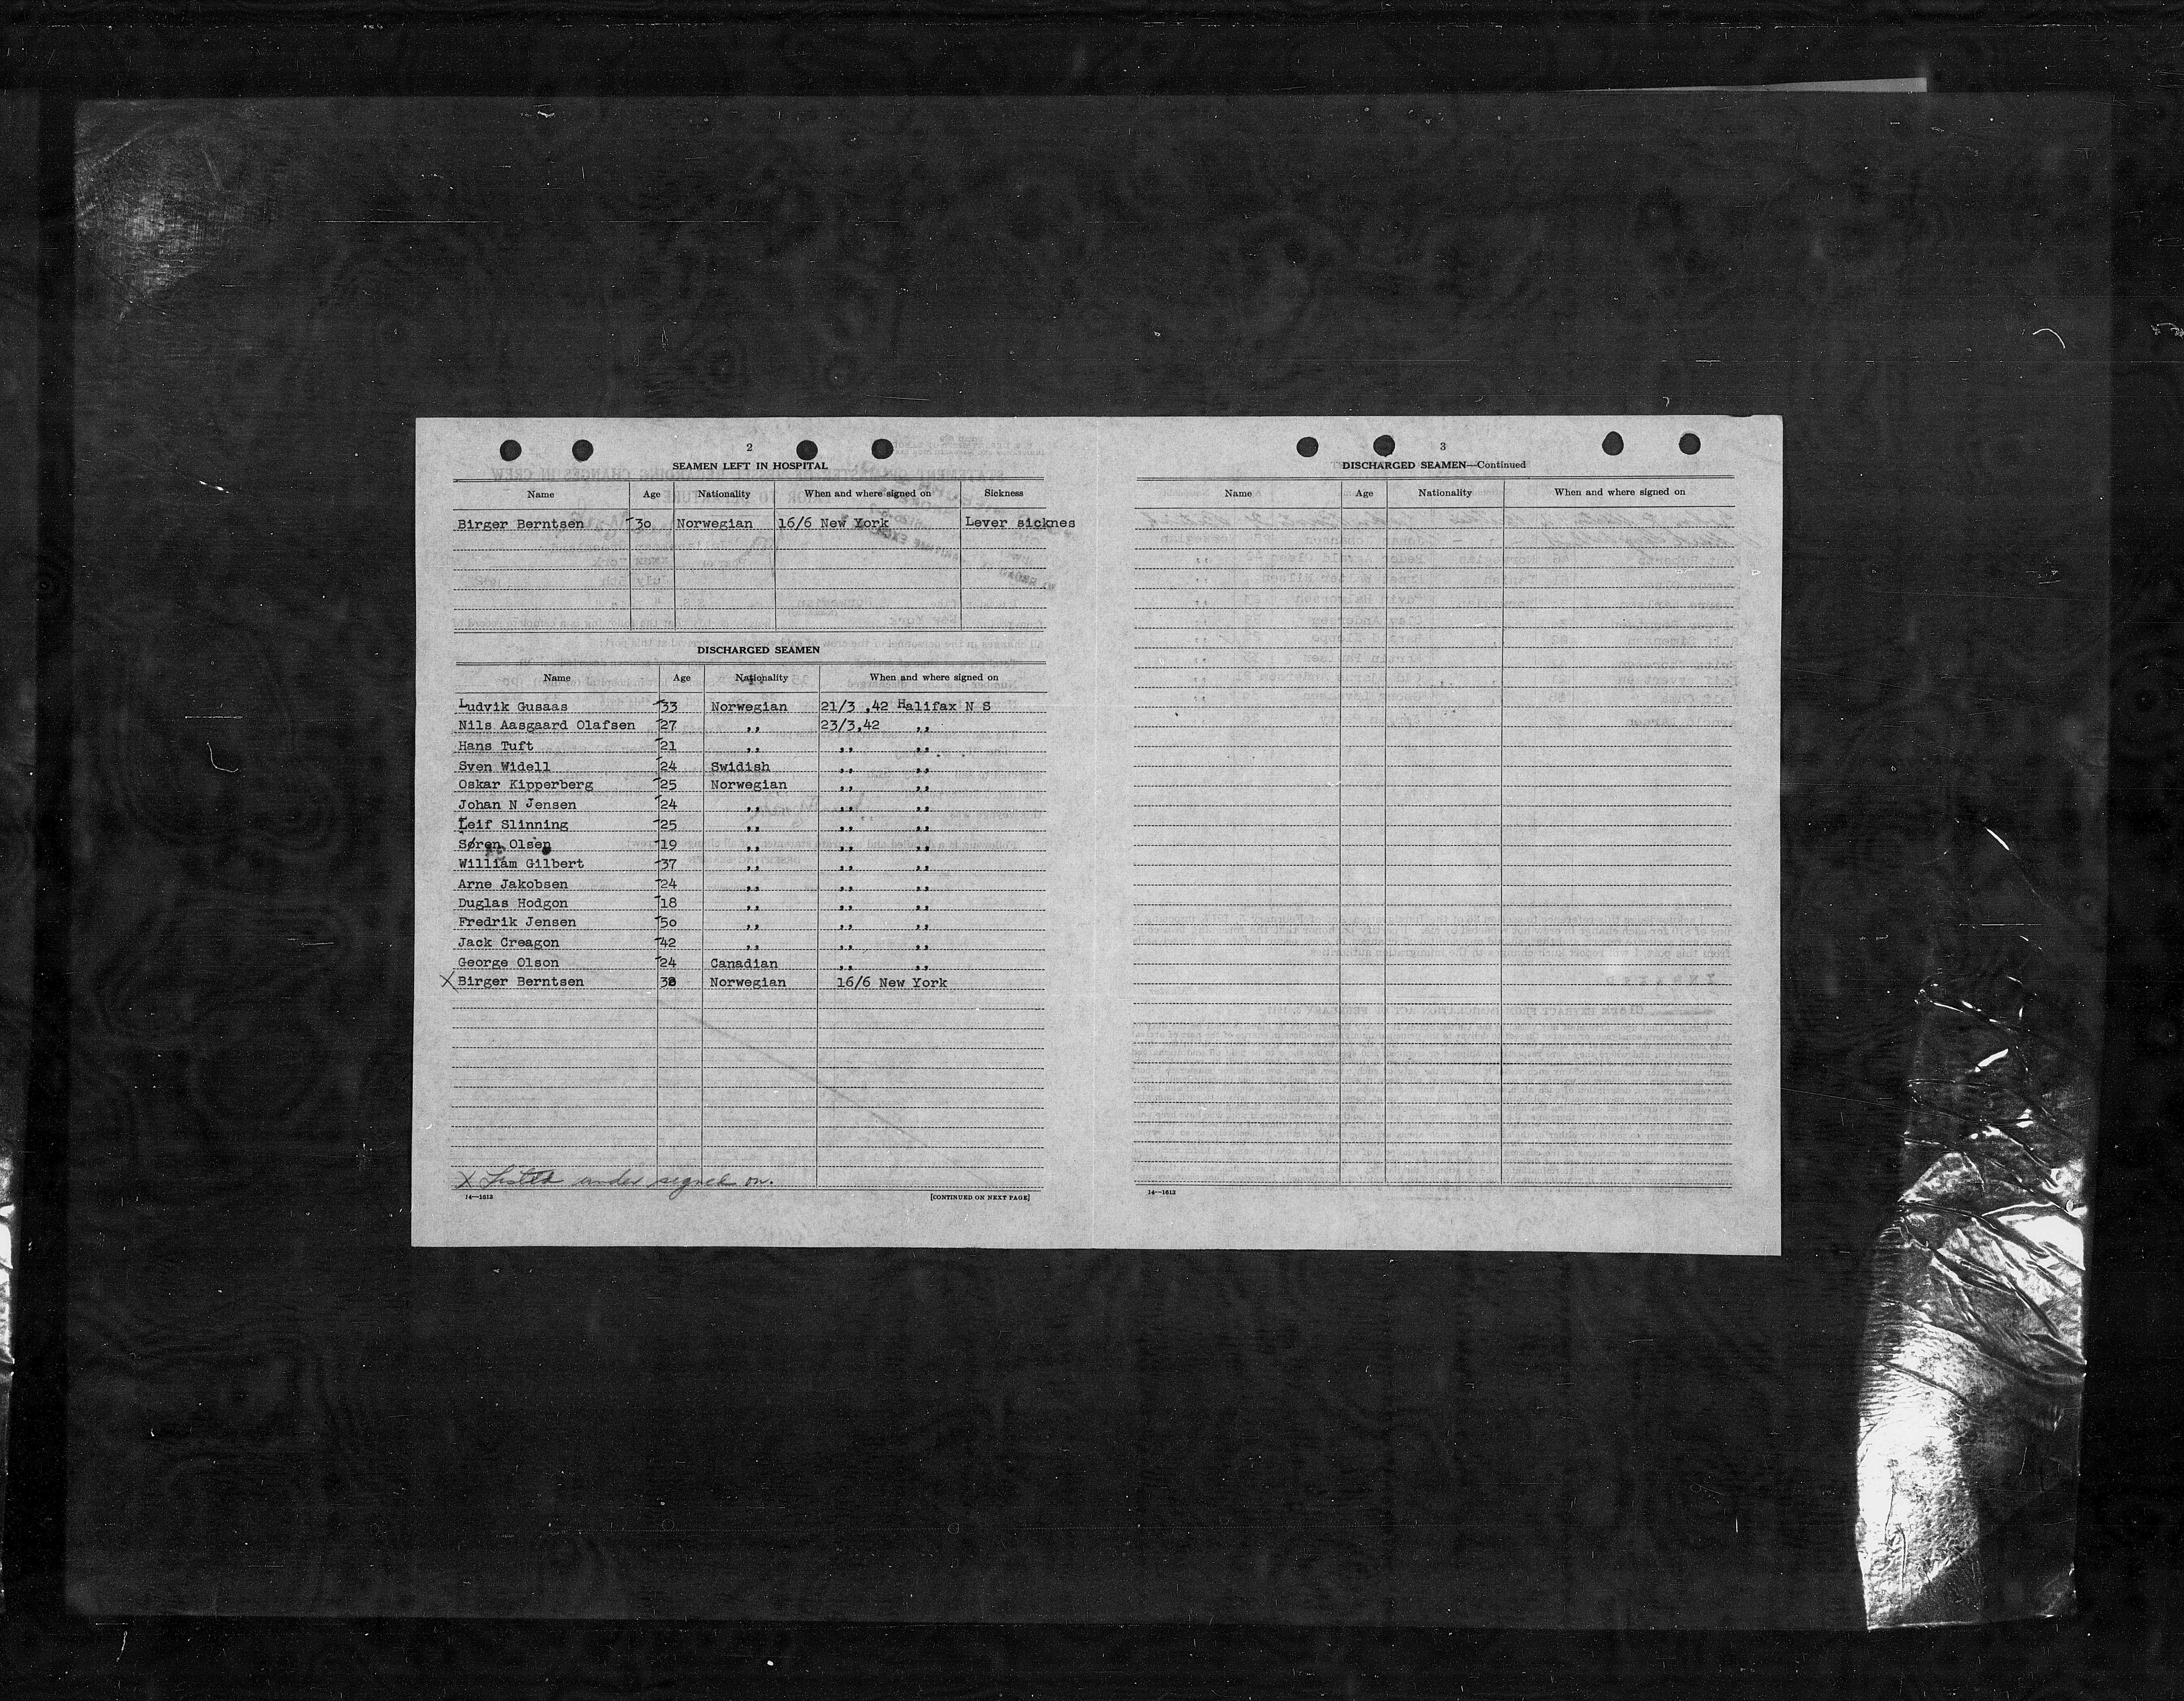 2
SEAMEN LEFT IN HOSPITAL
Name Age Nationality When and where signed on Sickness
Birger Berntsen 30 Norwegian 16/6 New York Lever sicknes
DISCHARGED SEAMEN
Name Age Nationality When and where signed on
Ludvik Gusaas 33 Norwegian 21/3 ,42 Halifax N S
Nils Aasgaard Olafsen 27 ,, 23/3,42 ,,
Hans Tuft 21 ,, ,, ,,
Sven Widell 24 Swidish ,, ,,
Oskar Kipperberg 25 Norwegian ,, ,,
Johan N Jensen 24 ,, ,, ,,
Leif Slinning 25 ,, ,, ,,
Søren Olsen 19 ,, ,, ,,
William Gilbert 37 ,, ,, ,,
Arne Jakobsen 24 ,, ,, ,,
Duglas Hodgon 18 ,, ,, ,,
Fredrik Jensen 50 ,, ,, ,,
Jack Creagon 42 ,, ,, ,,
George Olson 24 Canadian ,, ,,
X Birger Berntsen 30 Norwegian 16/6 New York
X Listed under signed on.
14—1613 [CONTINUED ON NEXT PAGE]
3
DISCHARGED SEAMEN—Continued
Name Age Nationality When and where signed on
14—1613